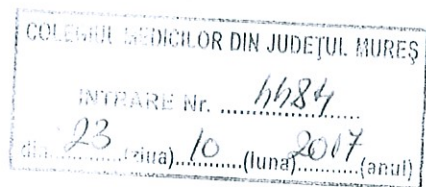 COLEGIUL MEDICILOR DIN JUDEŢUL MUREŞ
INTRARE Nr. ..................
din 23 (ziua) 10 (luna) 2017 (anul)